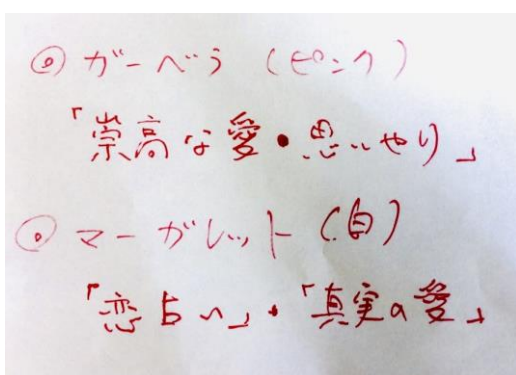 ◎ ガーベラ (ピンク)
「崇高な愛・思いやり」
◎ マーガレット (白)
「恋占い」・「真実の愛」